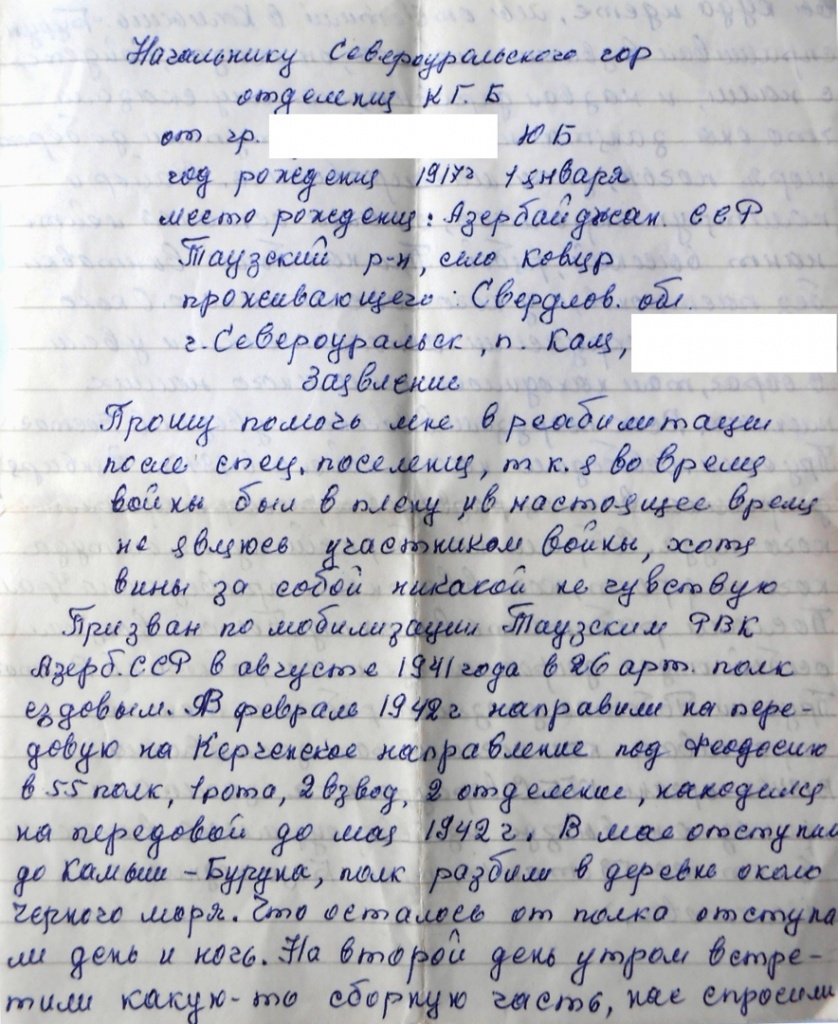 Начальнику Североуральского гор
отделения КГ.Б
от гр. ЮБ
год рождения 1917г 1 января
место рождения: Азербайджан. ССР
Таузский р-н, село Ковляр
проживающего: Свердлов. обл.
г. Североуральск, п. Калья,
Заявление
Прошу помочь мне в реабилитации
после спец. поселения, т к. я во время
войны был в плену и в настоящее время
не являюсь участником войны, хотя
вины за собой никакой не чувствую
Призван по мобилизации Таузским РВК
Азерб. ССР в августе 1941 года в 26 арт. полк
ездовым. В февраль 1942 г направили на пере-
довую на Керченское направление под Феодосию
в 55 полк, 1 рота, 2 взвод, 2 отделение, находился
на передовой до мая 1942 г. В мае отступили
до Камыш-Буруна, полк разбили в деревне около
Черного моря. Что осталось от полка отступа
ли день и ночь. На второй день утром встре-
тили какую-то сборную часть, нас спросили